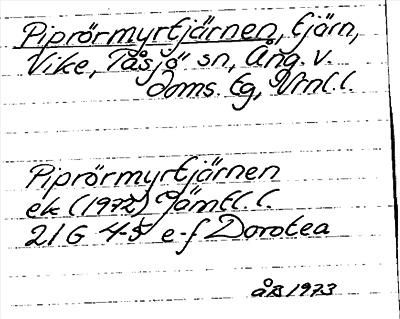 Piprörmyrtjärnen, tjärn,
Vike, Tåsjö sn, Ång. v.
doms. tg, Vrnl. l.
Piprörmyrtjärnen
ek (1972) Jämtl. l.
21G 4-5 e-f Dorotea
åB 1973